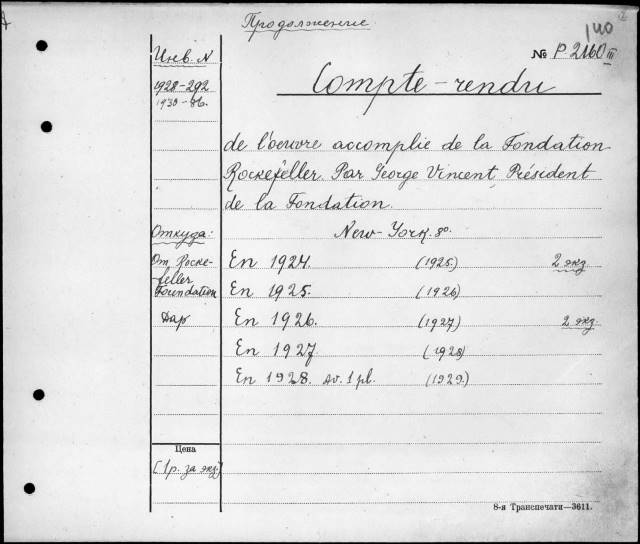 Продолжение
140
Инв. N
№ P 2160 III
1928-292
1930-86.
Compte-rendu
de l'oeuvre accomplie de la Fondation
Rockefeller. Par George Vincent, Président
de la Fondation.
Откуда:
New-York. 8°.
От Rocke-
feller
Foundation
En 1924. (1925) 2 экз.
En 1925. (1926)
Дар
En 1926. (1927) 2 экз.
En 1927 (1928)
En 1928. av. 1 pl. (1929.)
Цена
[1 р. за экз.]
8-я Транспечати—3611.